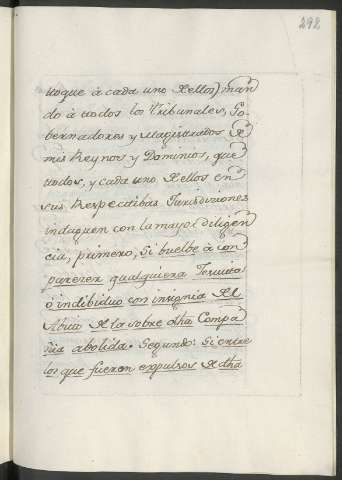 292
toque à cada uno de ellos) man
do à todos los Tribunales, Go-
bernadores y Magistrados de
mis Reynos y Dominios, que
todos, y cada uno de ellos en
sus respectibas Jurisdiziones
indaguen con la mayor diligen
cia, primero, Si buelbe à con
parezer qualquiera Jesuita
ò indibiduo con insignia del
Abito de la sobre dha Compa
ñia abolida. Segundo: Si entre
los que fueron expulsos de dha